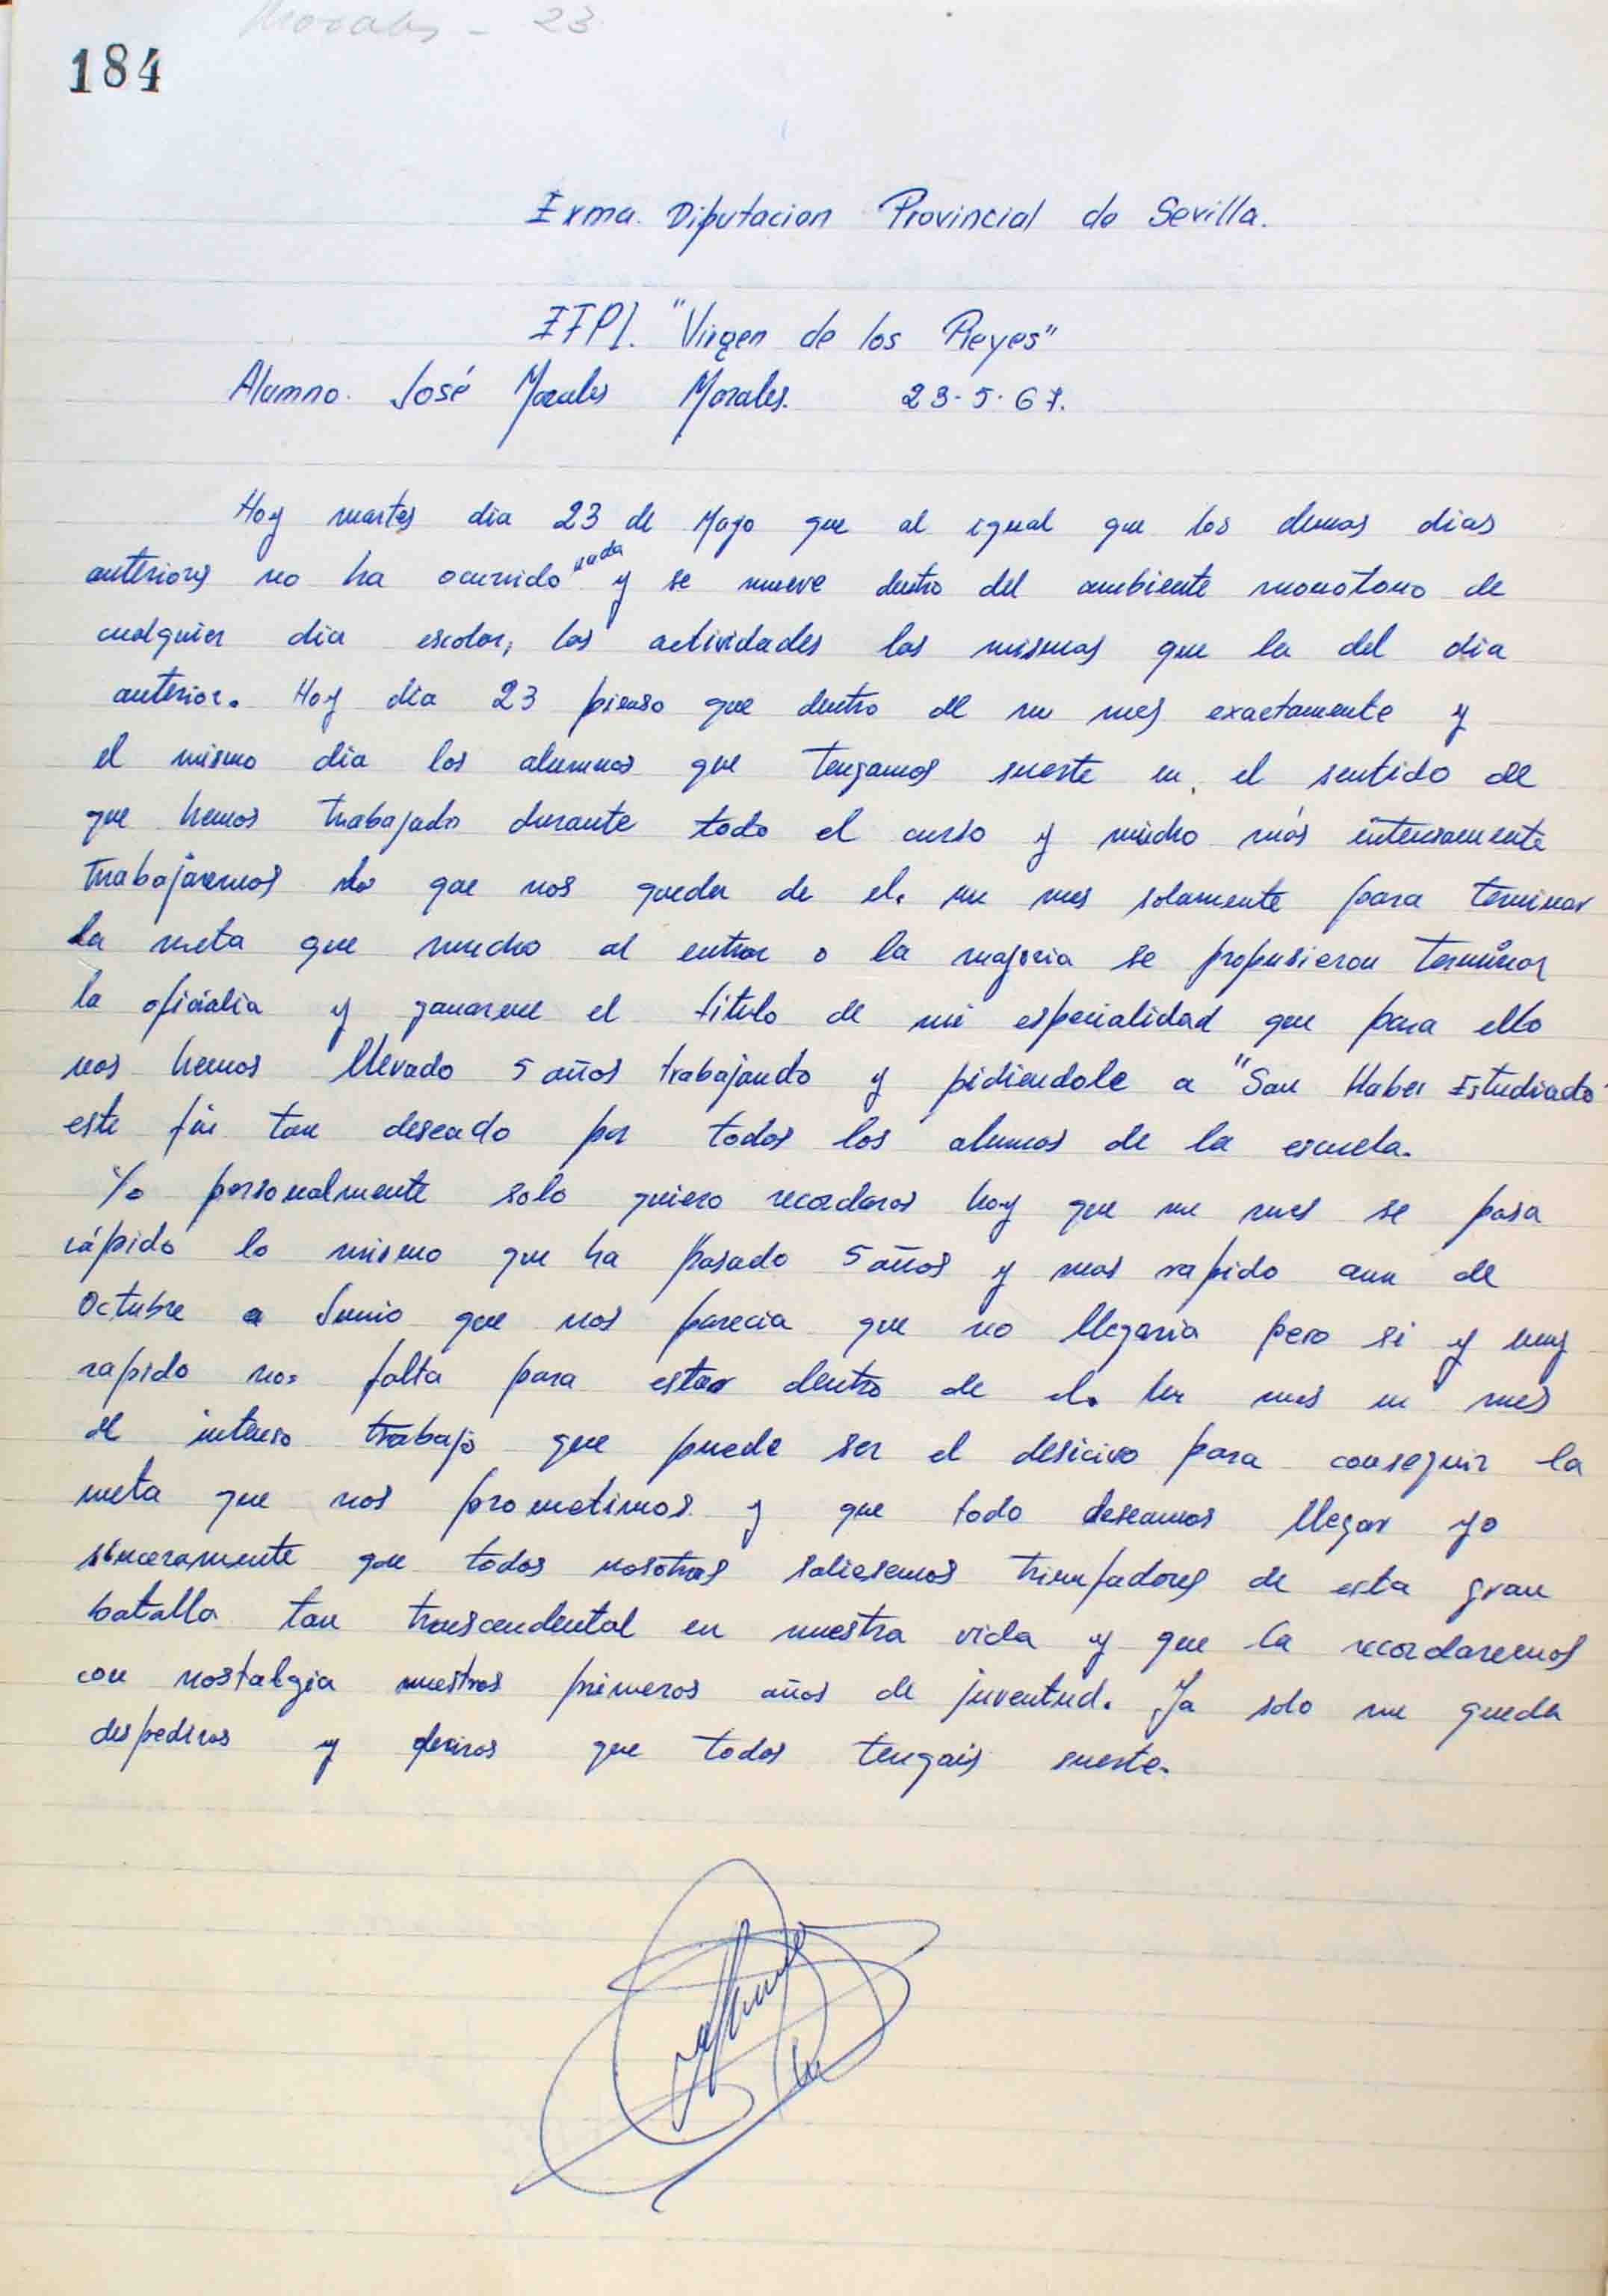 Morales - 23
184
Exma. Diputacion Provincial de Sevilla.
IFPI. "Virgen de los Reyes"
Alumno. José Morales Morales. 23-5-67.
Hoy martes dia 23 de Mayo que al igual que los demas dias
anteriores no ha ocurrido nada y se mueve dentro del ambiente monótono de
cualquier dia escolar, las actividades las mismas que la del dia
anterior. Hoy dia 23 pienso que dentro de un mes exactamente y
el mismo dia los alumnos que tengamos suerte en el sentido de
que hemos trabajado durante todo el curso y mucho más intensamente
trabajaremos lo que nos queda de el. un mes solamente para terminar
la meta que mucho al entrar o la mayoria se propusieron terminar
la oficialia y ganarme el titulo de mi especialidad que para ello
nos hemos llevado 5 años trabajando y pidiendole a "San Haber Estudiado"
este fin tan deseado por todos los alumnos de la escuela.
Yo personalmente solo quiero recordaros hoy que un mes se pasa
rápido lo mismo que ha pasado 5 años y mas rapido aun de
Octubre a Junio que nos parecia que no llegaria pero si y muy
rapido nos falta para estar dentro de el. Un mes un mes
de intenso trabajo que puede ser el desicivo para conseguir la
meta que nos prometimos y que todo deseamos llegar yo
sinceramente que todos nosotros saliesemos triunfadores de esta gran
batalla tan transcendental en nuestra vida y que la recordaremos
con nostalgia nuestros primeros años de juventud. Ya solo me queda
despediros y deciros que todos tengais suerte.